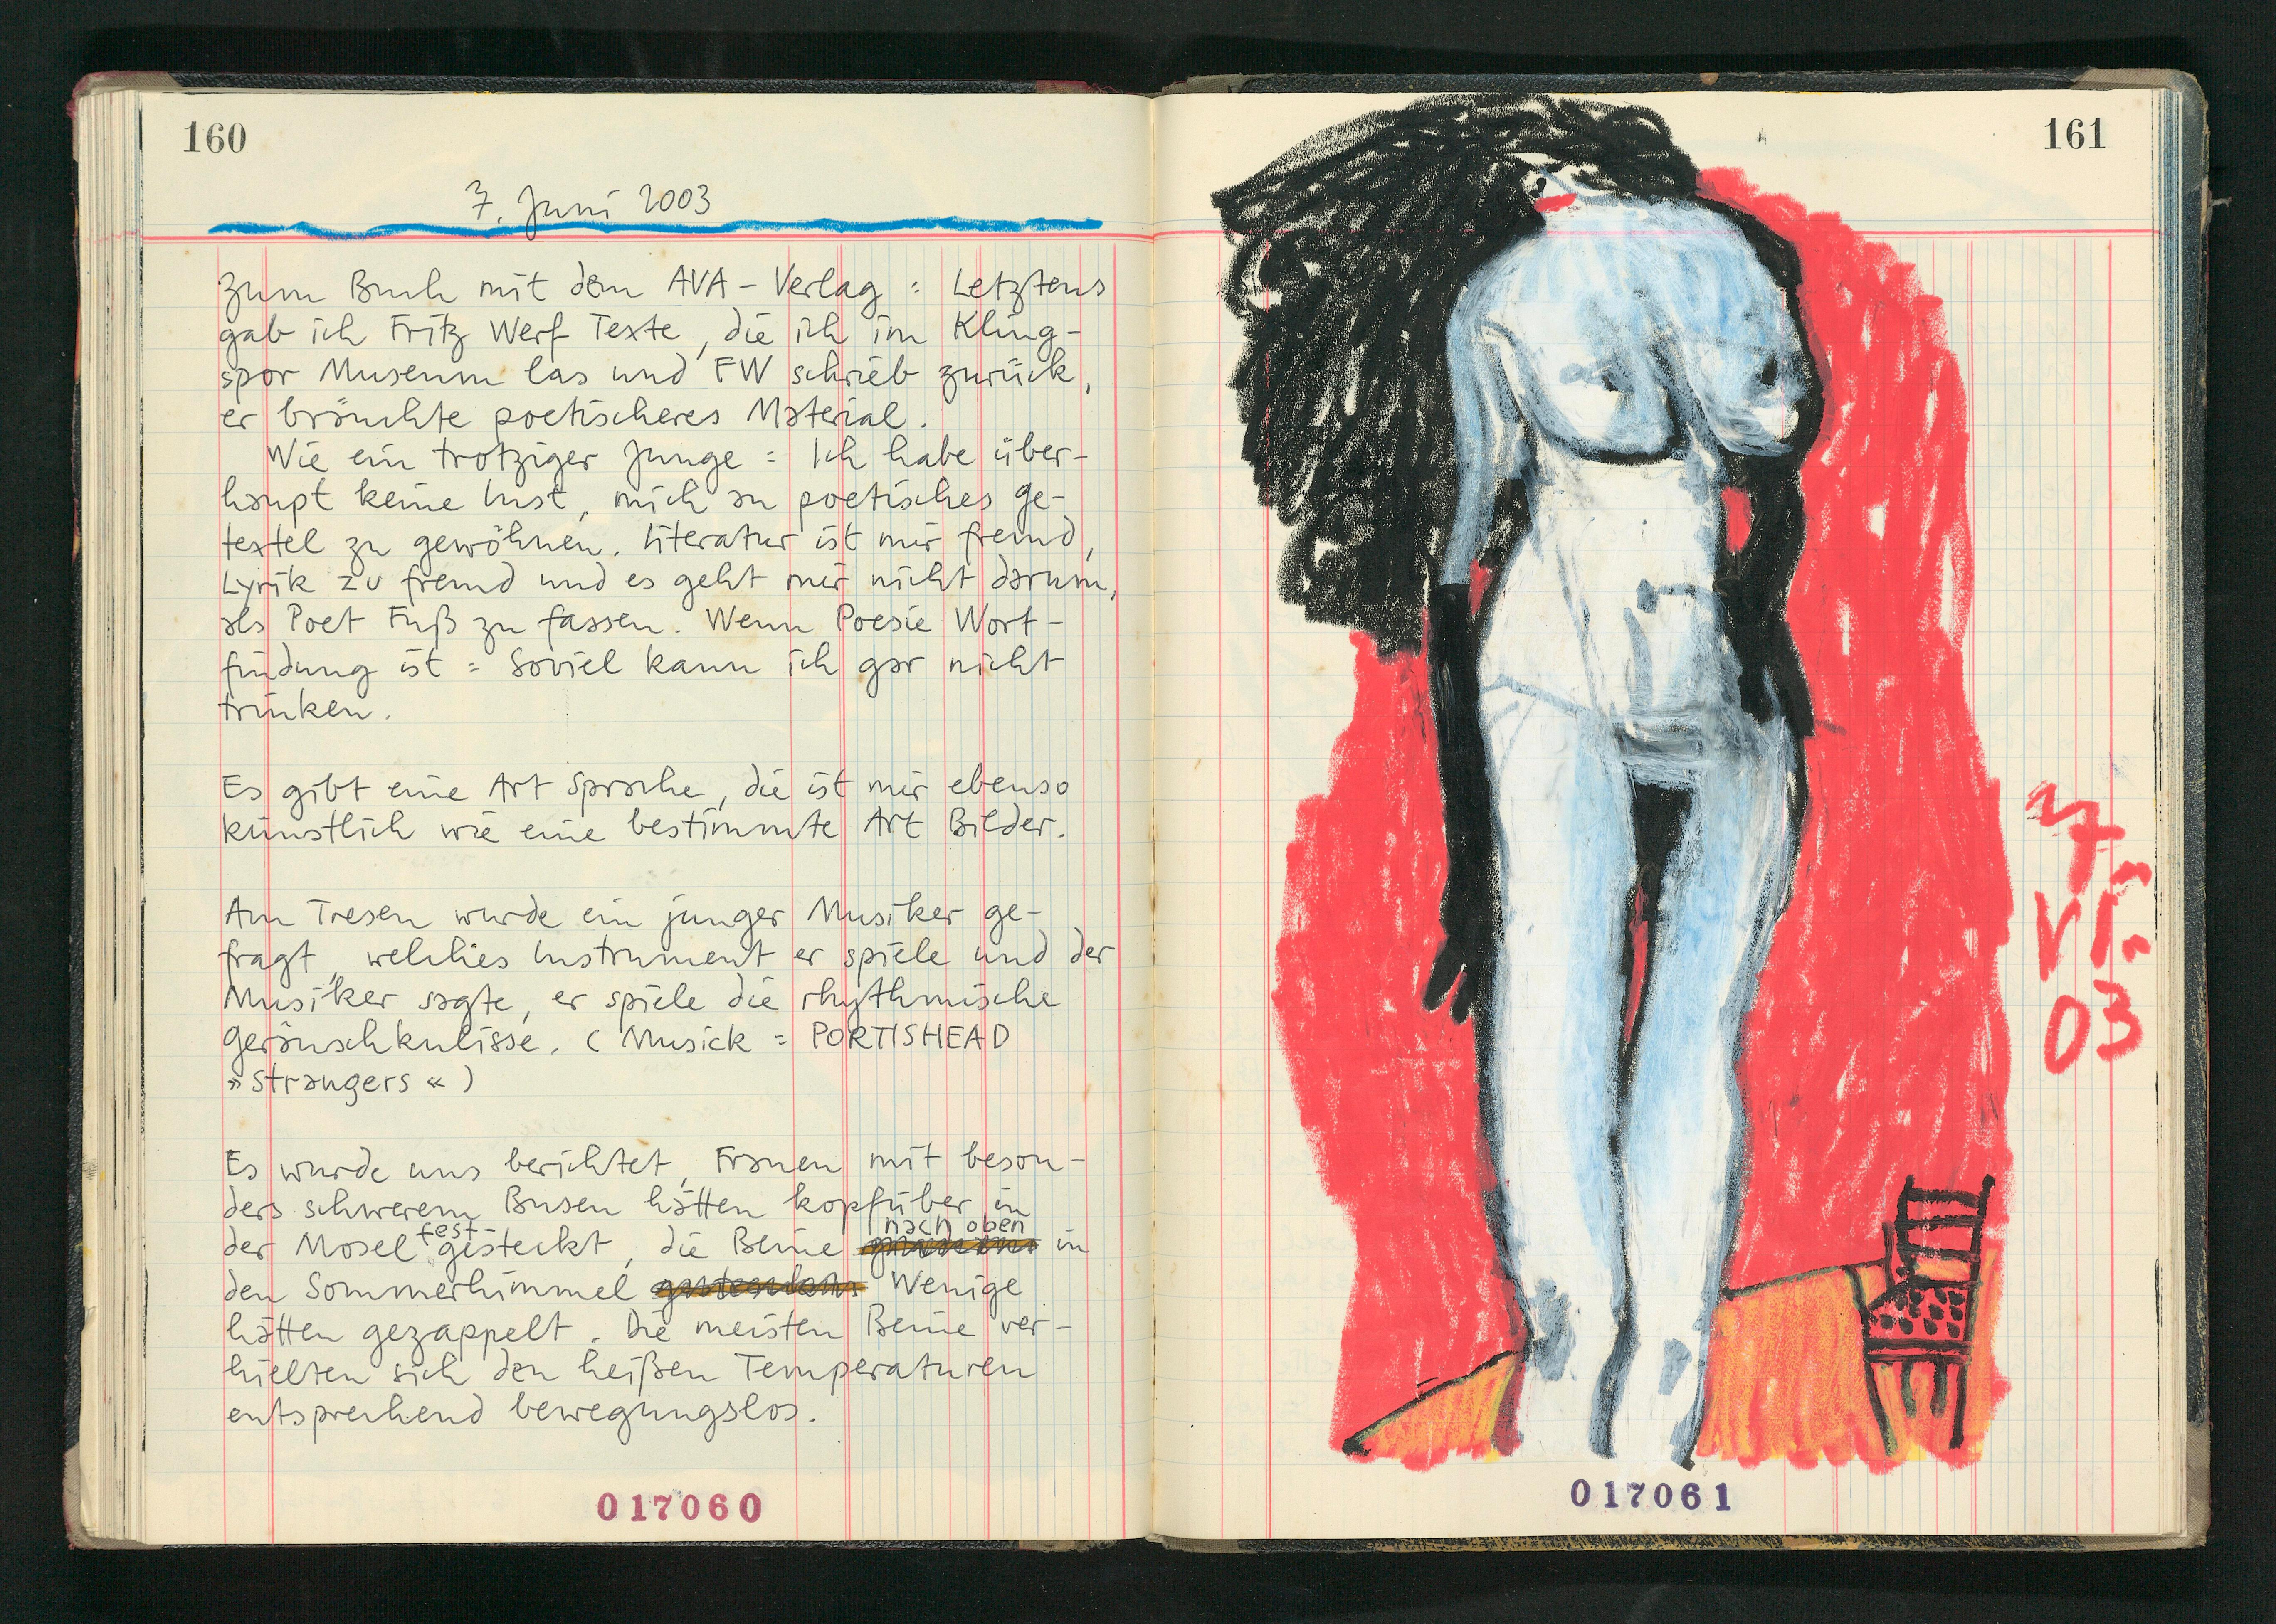 160
7. Juni 2003
Zum Buch mit dem AVA-Verlag: Letztens
gab ich Fritz Werf Texte, die ich im Kling-
spor Museum las und FW schrieb zurück,
er bräuchte poetischeres Material.
Wie ein trotziger Junge: Ich habe über-
haupt keine Lust, mich an poetisches Ge-
textel zu gewöhnen. Literatur ist mir fremd,
Lyrik zu fremd und es geht mir nicht darum,
als Poet Fuß zu fassen. Wenn Poesie Wort-
findung ist: Soviel kann ich gar nicht
trinken.
Es gibt eine Art Sprache, die ist mir ebenso
künstlich wie eine bestimmte Art Bilder.
Am Tresen wurde ein junger Musiker ge-
fragt, welches Instrument er spiele und der
Musiker sagte, er spiele die rhythmische
Geräuschkulisse. (Musick: PORTISHEAD
»Strangers«)
Es wurde uns berichtet, Frauen mit beson-
ders schwerem Busen hätten kopfüber in
der Mosel festgesteckt, die Beine nach oben in
den Sommerhimmel Wenige
hätten gezappelt. Die meisten Beine ver-
hielten sich den heißen Temperaturen
entsprechend bewegungslos.
017060
161
7.
VI.
03
017061